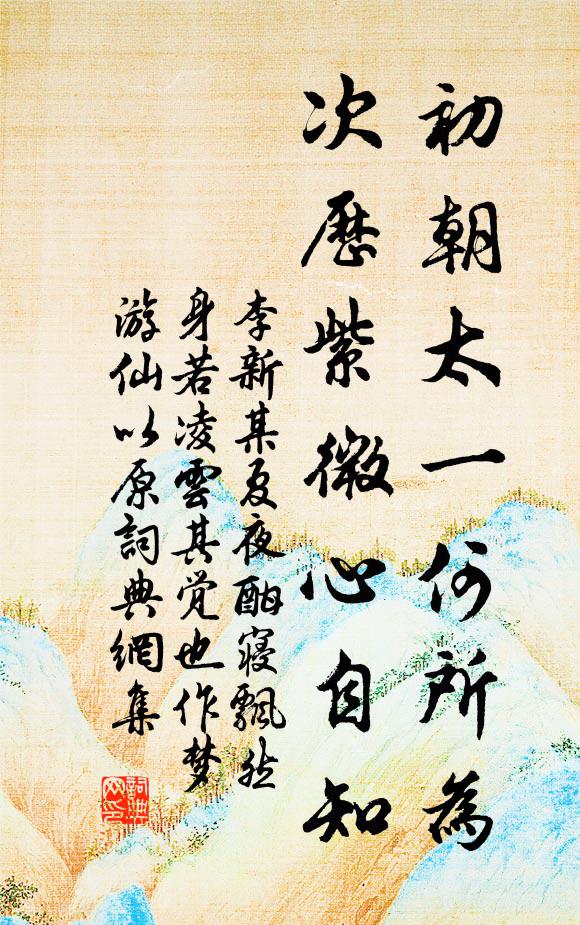 初朝太一何所為
次歷紫微心自知
李新某夏夜酣寝飄然
身若凌雲其覺也作梦
游仙以原詞典網集
詞典